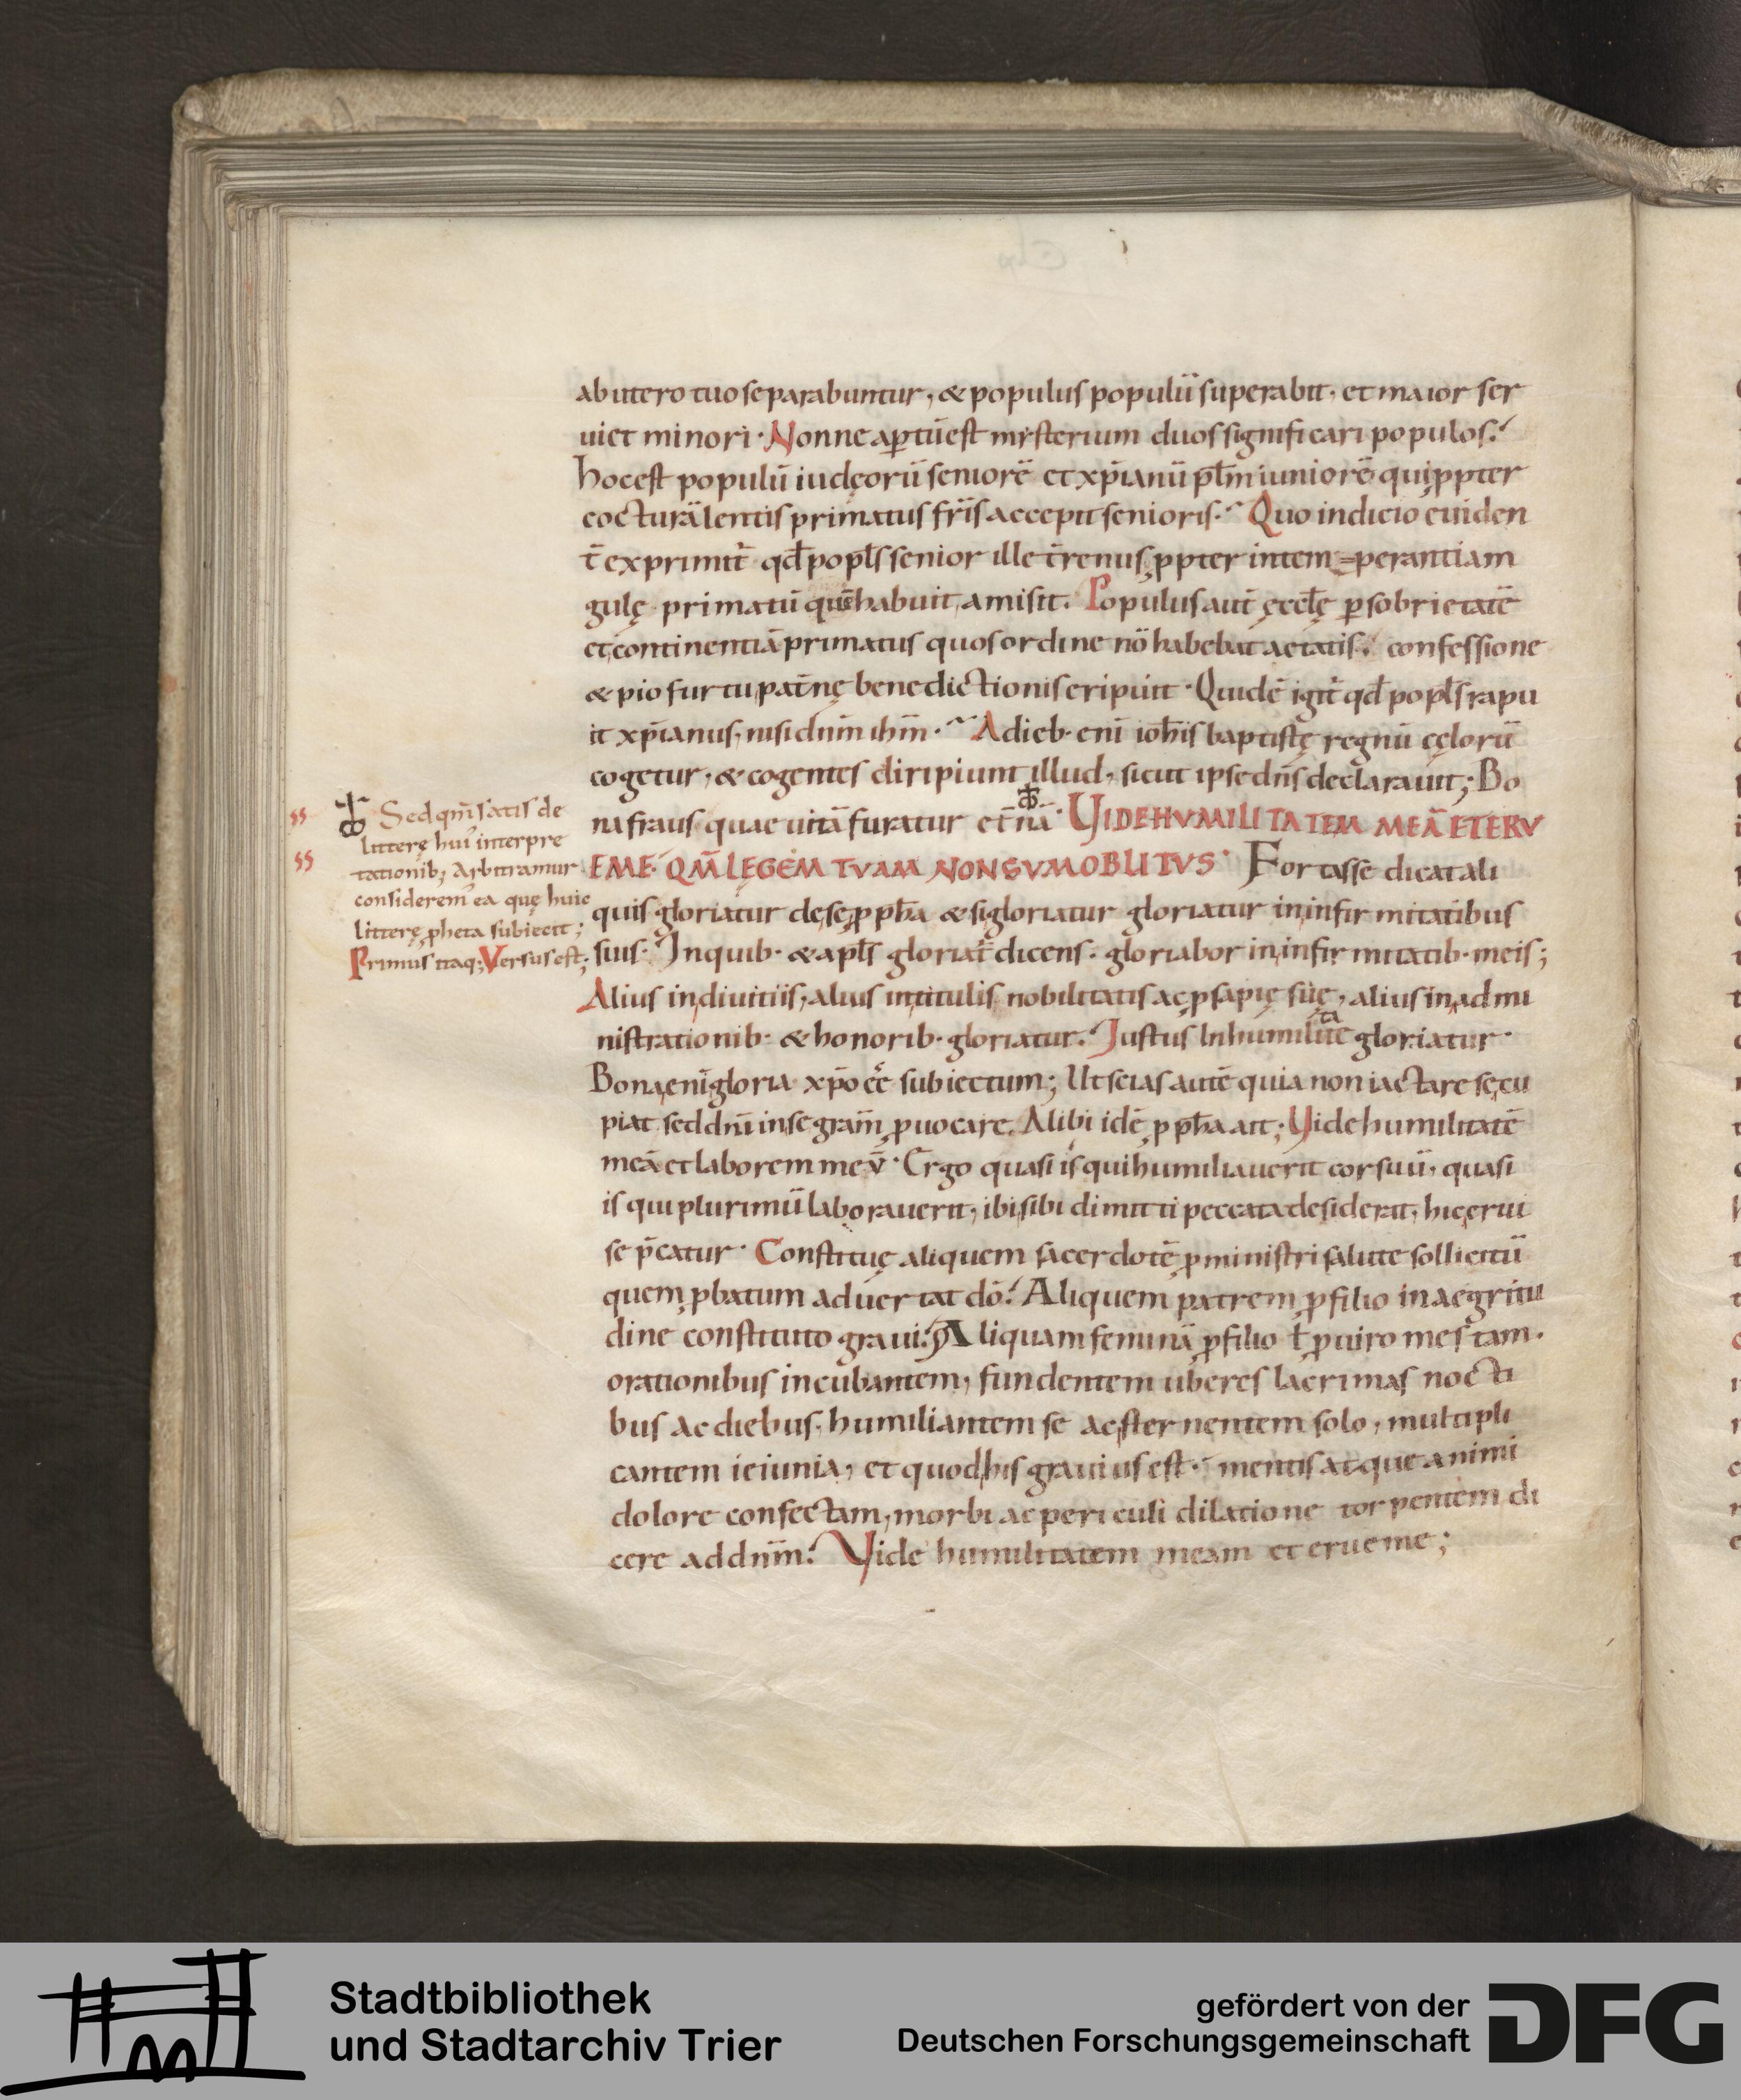 ab utero tuo separabuntur, & populus populū superabit, et maior ser
uiet minori. Nonne aꝑtū est mysterium duos significari populos?
hoc est populū iudęorū seniorē et xp̄ianū ppl̄m iuniorē qui ꝓpter
cocturā lentis primatus fr̄is accepit senioris. Quo indicio euiden
t̄ exprimit̄ qđ popl̄s senior ille t̄renus, ꝓpter intem perantiam
gulę primatū quē habuit, amisit. Populus aut̄ ęccl̄ę ꝑ sobrietatē
et continentiā primatus quos ordine nō habebat aetatis, confessione
& pio furtu pat̄nę benedictionis eripuit. Quid ē igit̄ qđ popl̄s rapu
it xp̄ianus, nisi dn̄m ih̄m. A dieb. enī ioh̄is baptistę regnū cęlorū
cogetur, & cogentes diripiunt illud, sicut ipse dn̄s declarauit; Bo
na fraus quae uitā furatur et̄nā. UIDE HUMILITATEM MEĀ ET ERU
E ME. QM̄ LEGEM TUAM NON SUM OBLITUS. Fortasse dicat ali
quis gloriatur de se ꝓph̄a & si gloriatur gloriatur in infirmitatibus
suis. In quib. & apl̄s gloriat̄ dicens. gloriabor in infirmitatib. meis;
Alius in diuitiis, alius in titulis nobilitatis ac ꝓsapię suę, alius in admi
nistrationib. & honorib. gloriatur. Iustus in humilitate gloriatur.
Bona enī gloria xp̄o ēē subiectum; Ut scias autē quia non iactare se cu
piat sed dn̄i in se grām ꝓuocare. Alibi idē ꝓph̄a ait; Vide humilitatē
meā et laborem meū. Ergo quasi is qui humiliauerit cor suū, quasi
is qui plurimū laborauerit, ibi sibi dimitti peccata desiderat, hic erui
se p̄catur. Constitue aliquem sacerdotē ꝓ ministri salute sollicitū
quem ꝓbatum aduertat dō. Aliquem patrem ꝓ filio in aegritu
dine constituto graui. Aliquam feminā ꝓ filio ł ꝓ uiro mestam.
orationibus incubantem, fundentem uberes lacrimas nocti
bus ac diebus, humiliantem se ac sternentem solo, multipli
cantem ieiunia, et quod his grauius est. mentis atque animi
dolore confectam, morbi ac periculi dilatione torpentem di
cere ad dn̄m. Vide humilitatem meam et erue me;
Sed qm̄ satis de
litterę hui᾽ interpre
tationib; Arbitramur
considerem᾽ ea quę huic
litterę ꝓpheta subiecit;
Primus itaq; Versus est;
Stadtbibliothek
und Stadtarchiv Trier
gefördert von der
Deutschen Forschungsgemeinschaft
DFG